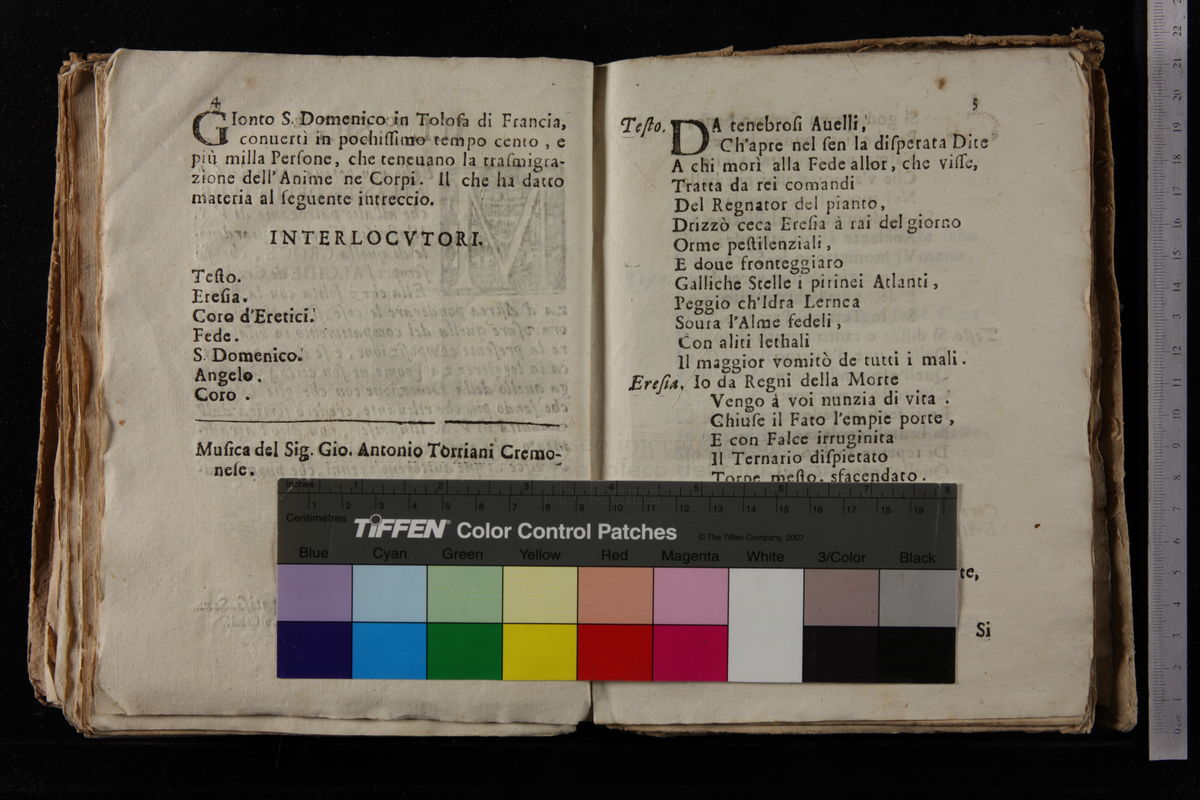 4
GIonto S. Domenico in Tolosa di Francia,
conuertì in pochissimo tempo cento, e
più milla Persone, che teneuano la trasmigra-
zione dell'Anime ne Corpi. Il che ha datto
materia al seguente intreccio.
INTERLOCVTORI.
Testo.
Eresia.
Coro d'Eretici.
Fede.
S. Domenico.
Angelo.
Coro.
Musica del Sig. Gio. Antonio Torriani Cremo-
nese.
5
Testo. DA tenebrosi Auelli,
Ch'apre nel sen la disperata Dite
A chi morì alla Fede allor, che visse,
Tratta da rei comandi
Del Regnator del pianto,
Drizzò ceca Eresia à rai del giorno
Orme pestilenziali,
E doue fronteggiaro
Galliche Stelle i pirinei Atlanti,
Peggio ch'Idra Lernea
Soura l'Alme fedeli,
Con aliti lethali
Il maggior vomitò de tutti i mali.
Eresia. Io da Regni della Morte
Vengo à voi nunzia di vita.
Chiuse il Fato l'empie porte,
E con Falce irruginita
Il Ternario dispietato
Torne mesto, sfacendato.
te,
Si
Inches 1 2 3 4 5 6 7 8
1 2 3 4 5 6 7 8 9 10 11 12 13 14 15 16 17 18 19
Centimetres
TIFFEN® Color Control Patches
© The Tiffen Company, 2007
Blue Cyan Green Yellow Red Magenta White 3/Color Black